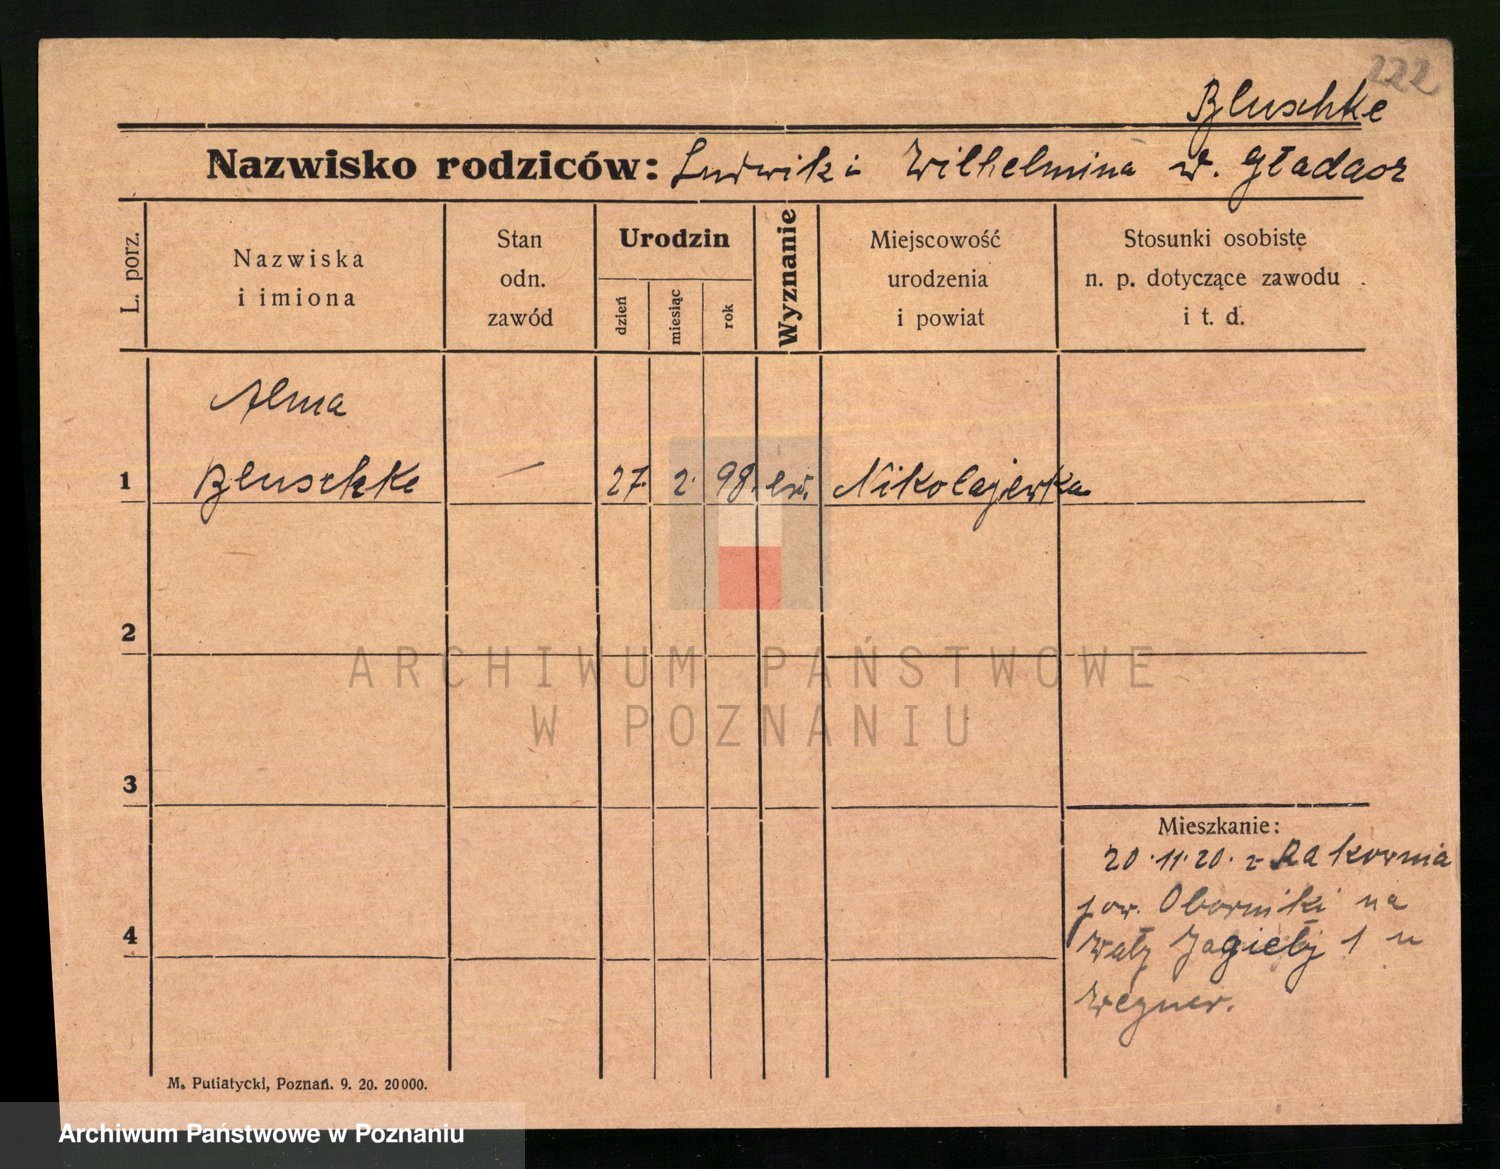 222
Bluschke
Nazwisko rodziców: Ludwik i Wilhelmina
L. porz.
Nazwiska
i imiona
Stan
odn.
zawód
Urodzin
dzień
miesiąc
rok
Wyznanie
Miejscowość
urodzenia
i powiat
Stosunki osobiste
n. p. dotyczące zawodu
i t. d.
Alma
1 Bluschke — 27 2. 98. ew. Nikołajewka
2
ARCHIWUM PAŃSTWOWE
W POZNANIU
3
Mieszkanie:
20.11.20. z Rakownia
pow. Oborniki na
4
Wały Jagiełły 1 u
Wegner.
M. Putiatycki, Poznań. 9. 20. 20000.
Archiwum Państwowe w Poznaniu